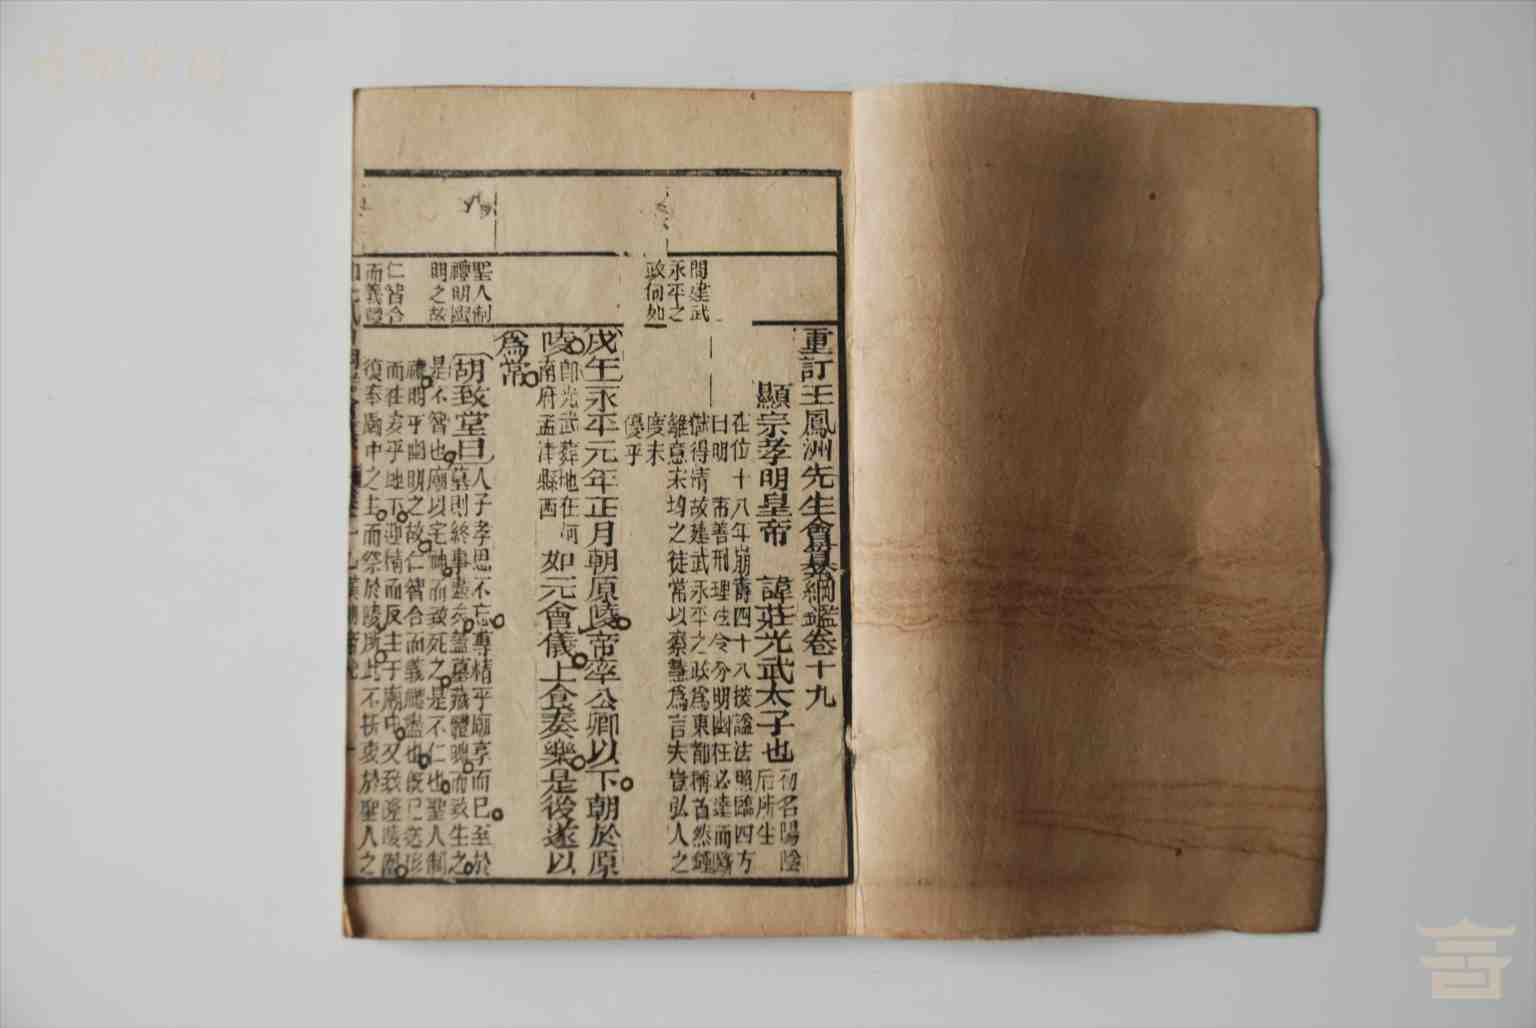 重訂王鳳洲先生會纂綱鑑卷十九
顯宗孝明皇帝 諱莊光武太子也
初名陽陰
后所生
在位十八年崩壽四十八按諡法照臨四方
曰明 帝善刑理法令分明幽枉必達而斷
獄得情故建武永平之政爲東都稱首然鍾
離意宋均之徒常以察慧爲言夫豈弘人之
度未
優乎
問建武
永平之
政何如
戊午永平元年正月朝原陵帝率公卿以下朝於原
陵
卽光武葬地在河
南府孟津縣西
如元會儀上食奏樂是後遂以
爲常
聖人制
禮明幽
明之故
仁智合
而義禮
胡致堂曰
人子孝思不忘專精乎廟享而已至於
墓則終事盡矣蓋墓藏體魄而致生之
是不智也廟以宅神而致死之是不仁也聖人制
禮明乎幽明之故仁智合而義禮盡也旣已送形
而往矣乎地下迎精而反主于廟中又致隆陵園
須奉廟中之主而祭於陵所此不折衷於聖人之